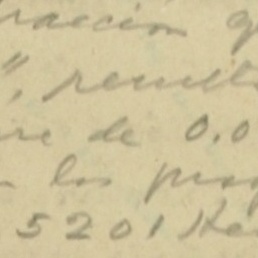 racción q
", result
re de 0.0
n los pro
5201 He